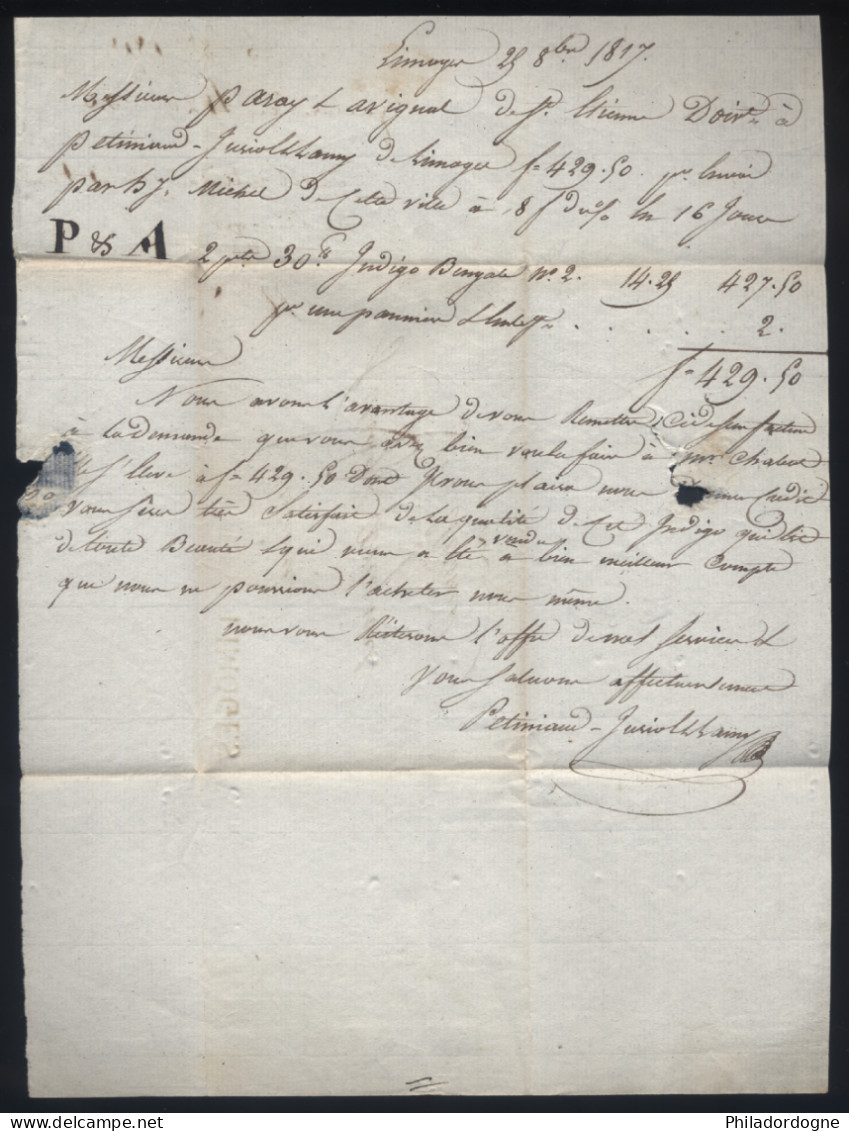 Limoges 25 8bre 1817.
Messieurs Paray & avignal de St. Etienne Doivt. à
Petiniaud-Juriol & Lamy de Limoges f= 429.50. pr. Envoi
par h J. Michel de Cette ville à 8 f du % En 16 Jours
P & A 2 pts 30 lt Indigo Bengale No. 2. 14.25 427.50
pr. une pannier & . . . . . 2.
f= 429.50
Messieurs
Nous avons l'avantage de vous Remettre, Ci dessus facture
à la demande que vous avez bien voulu faire à Mr. Chabot
S'Eleve à f= 429.50 Dont Il vous plaira nous Credit
vous Serez très Satisfait de la qualité de Cet Indigo qui Est
de toute Beauté & qui vous a Eté vendu à bien meilleur Compte
que nous ne pourrions l'acheter nous même.
nous vous Réiterons l'offre de nos Services &
Vous Saluons affectueusement
Petiniaud-Juriol & Lamy
LIMOGES
Philadordogne